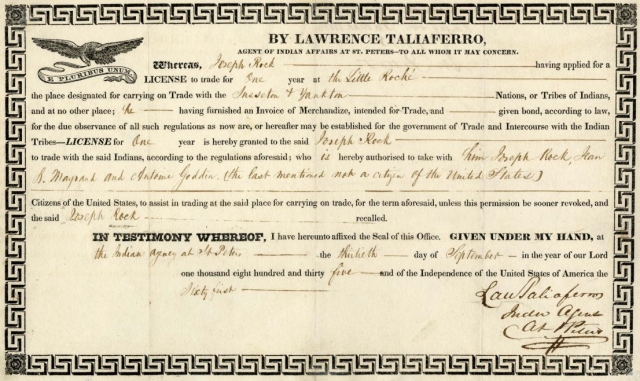 BY LAWRENCE TALIAFERRO,
AGENT OF INDIAN AFFAIRS AT ST. PETERS—TO ALL WHOM IT MAY CONCERN.
E PLURIBUS UNUM
Whereas, Joseph Rock having applied for a
LICENSE to trade for One year at the Little Roché
the place designated for carrying on Trade with the Susseton & Yankton Nations, or Tribes of Indians,
and at no other place; he having furnished an Invoice of Merchandize, intended for Trade, and given bond, according to law,
for the due observance of all such regulations as now are, or hereafter may be established for the government of Trade and Intercourse with the Indian
Tribes—LICENSE for One year is hereby granted to the said Joseph Rock
to trade with the said Indians, according to the regulations aforesaid; who is hereby authorised to take with him Joseph Rock, Jean
B. Magrand and Antoine Goddin, (the last mentioned not a citizen of the United States)
Citizens of the United States, to assist in trading at the said place for carrying on trade, for the term aforesaid, unless this permission be sooner revoked, and
the said Joseph Rock recalled.
IN TESTIMONY WHEREOF, I have hereunto affixed the Seal of this Office. GIVEN UNDER MY HAND, at
the Indian agency at St Peters the thirtieth day of September in the year of our Lord
one thousand eight hundred and thirty five and of the Independence of the United States of America the
Sixty first
Law Taliaferro
Indian Agent
at St Peters